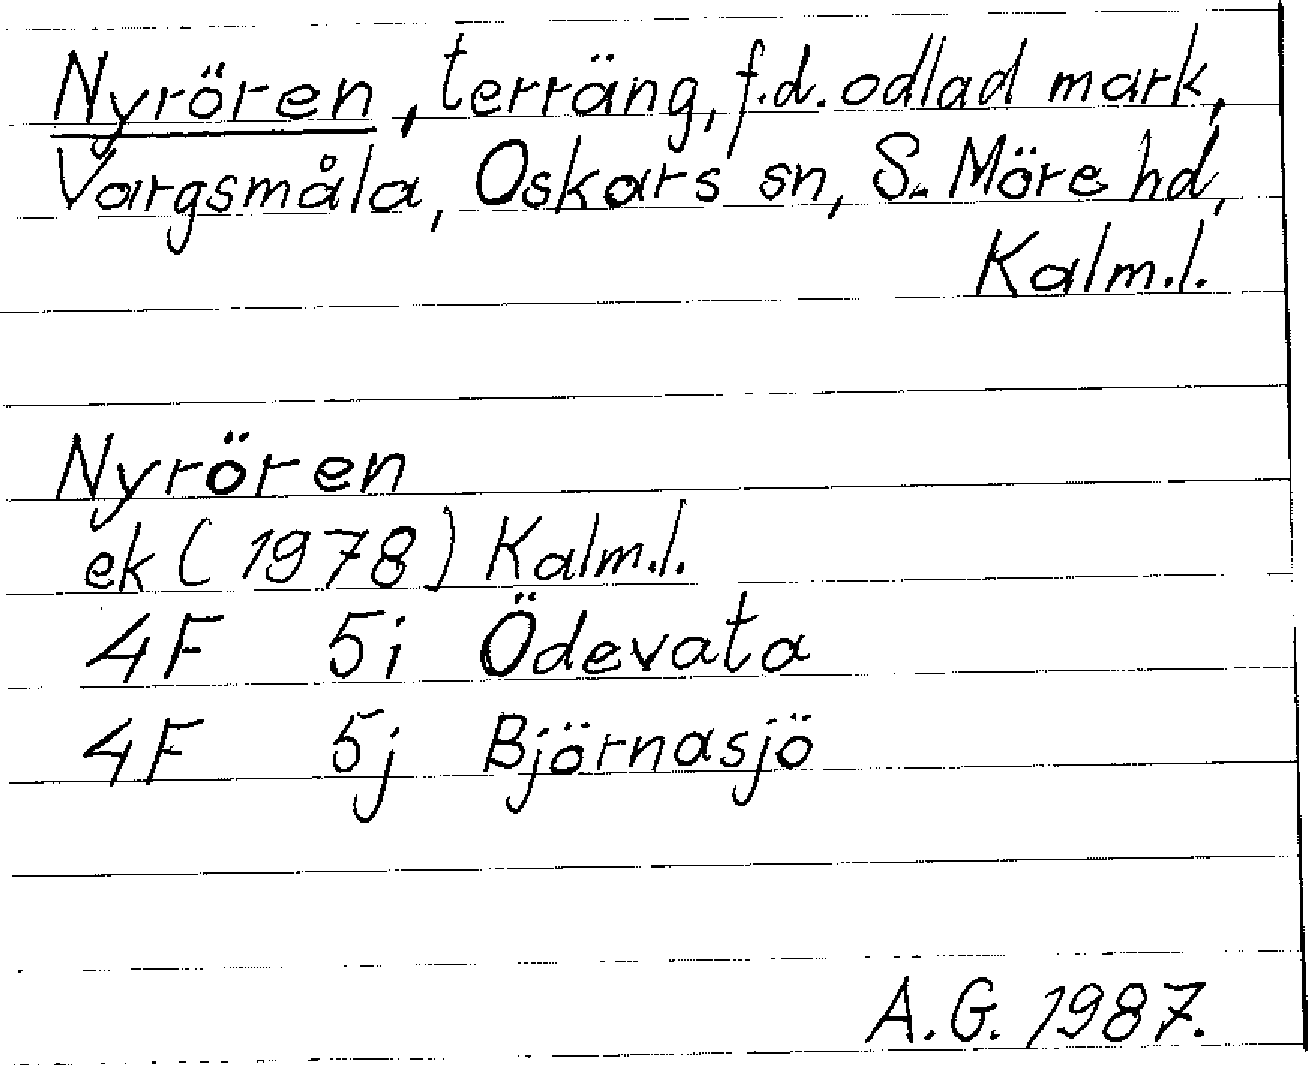 Nyrören, terräng, f.d. odlad mark,
Vargsmåla, Oskars sn, S. Möre hd,
Kalm.l.
Nyrören
ek (1978) Kalm.l.
4F 5i Ödevata
4F 5j Björnasjö
A.G. 1987.